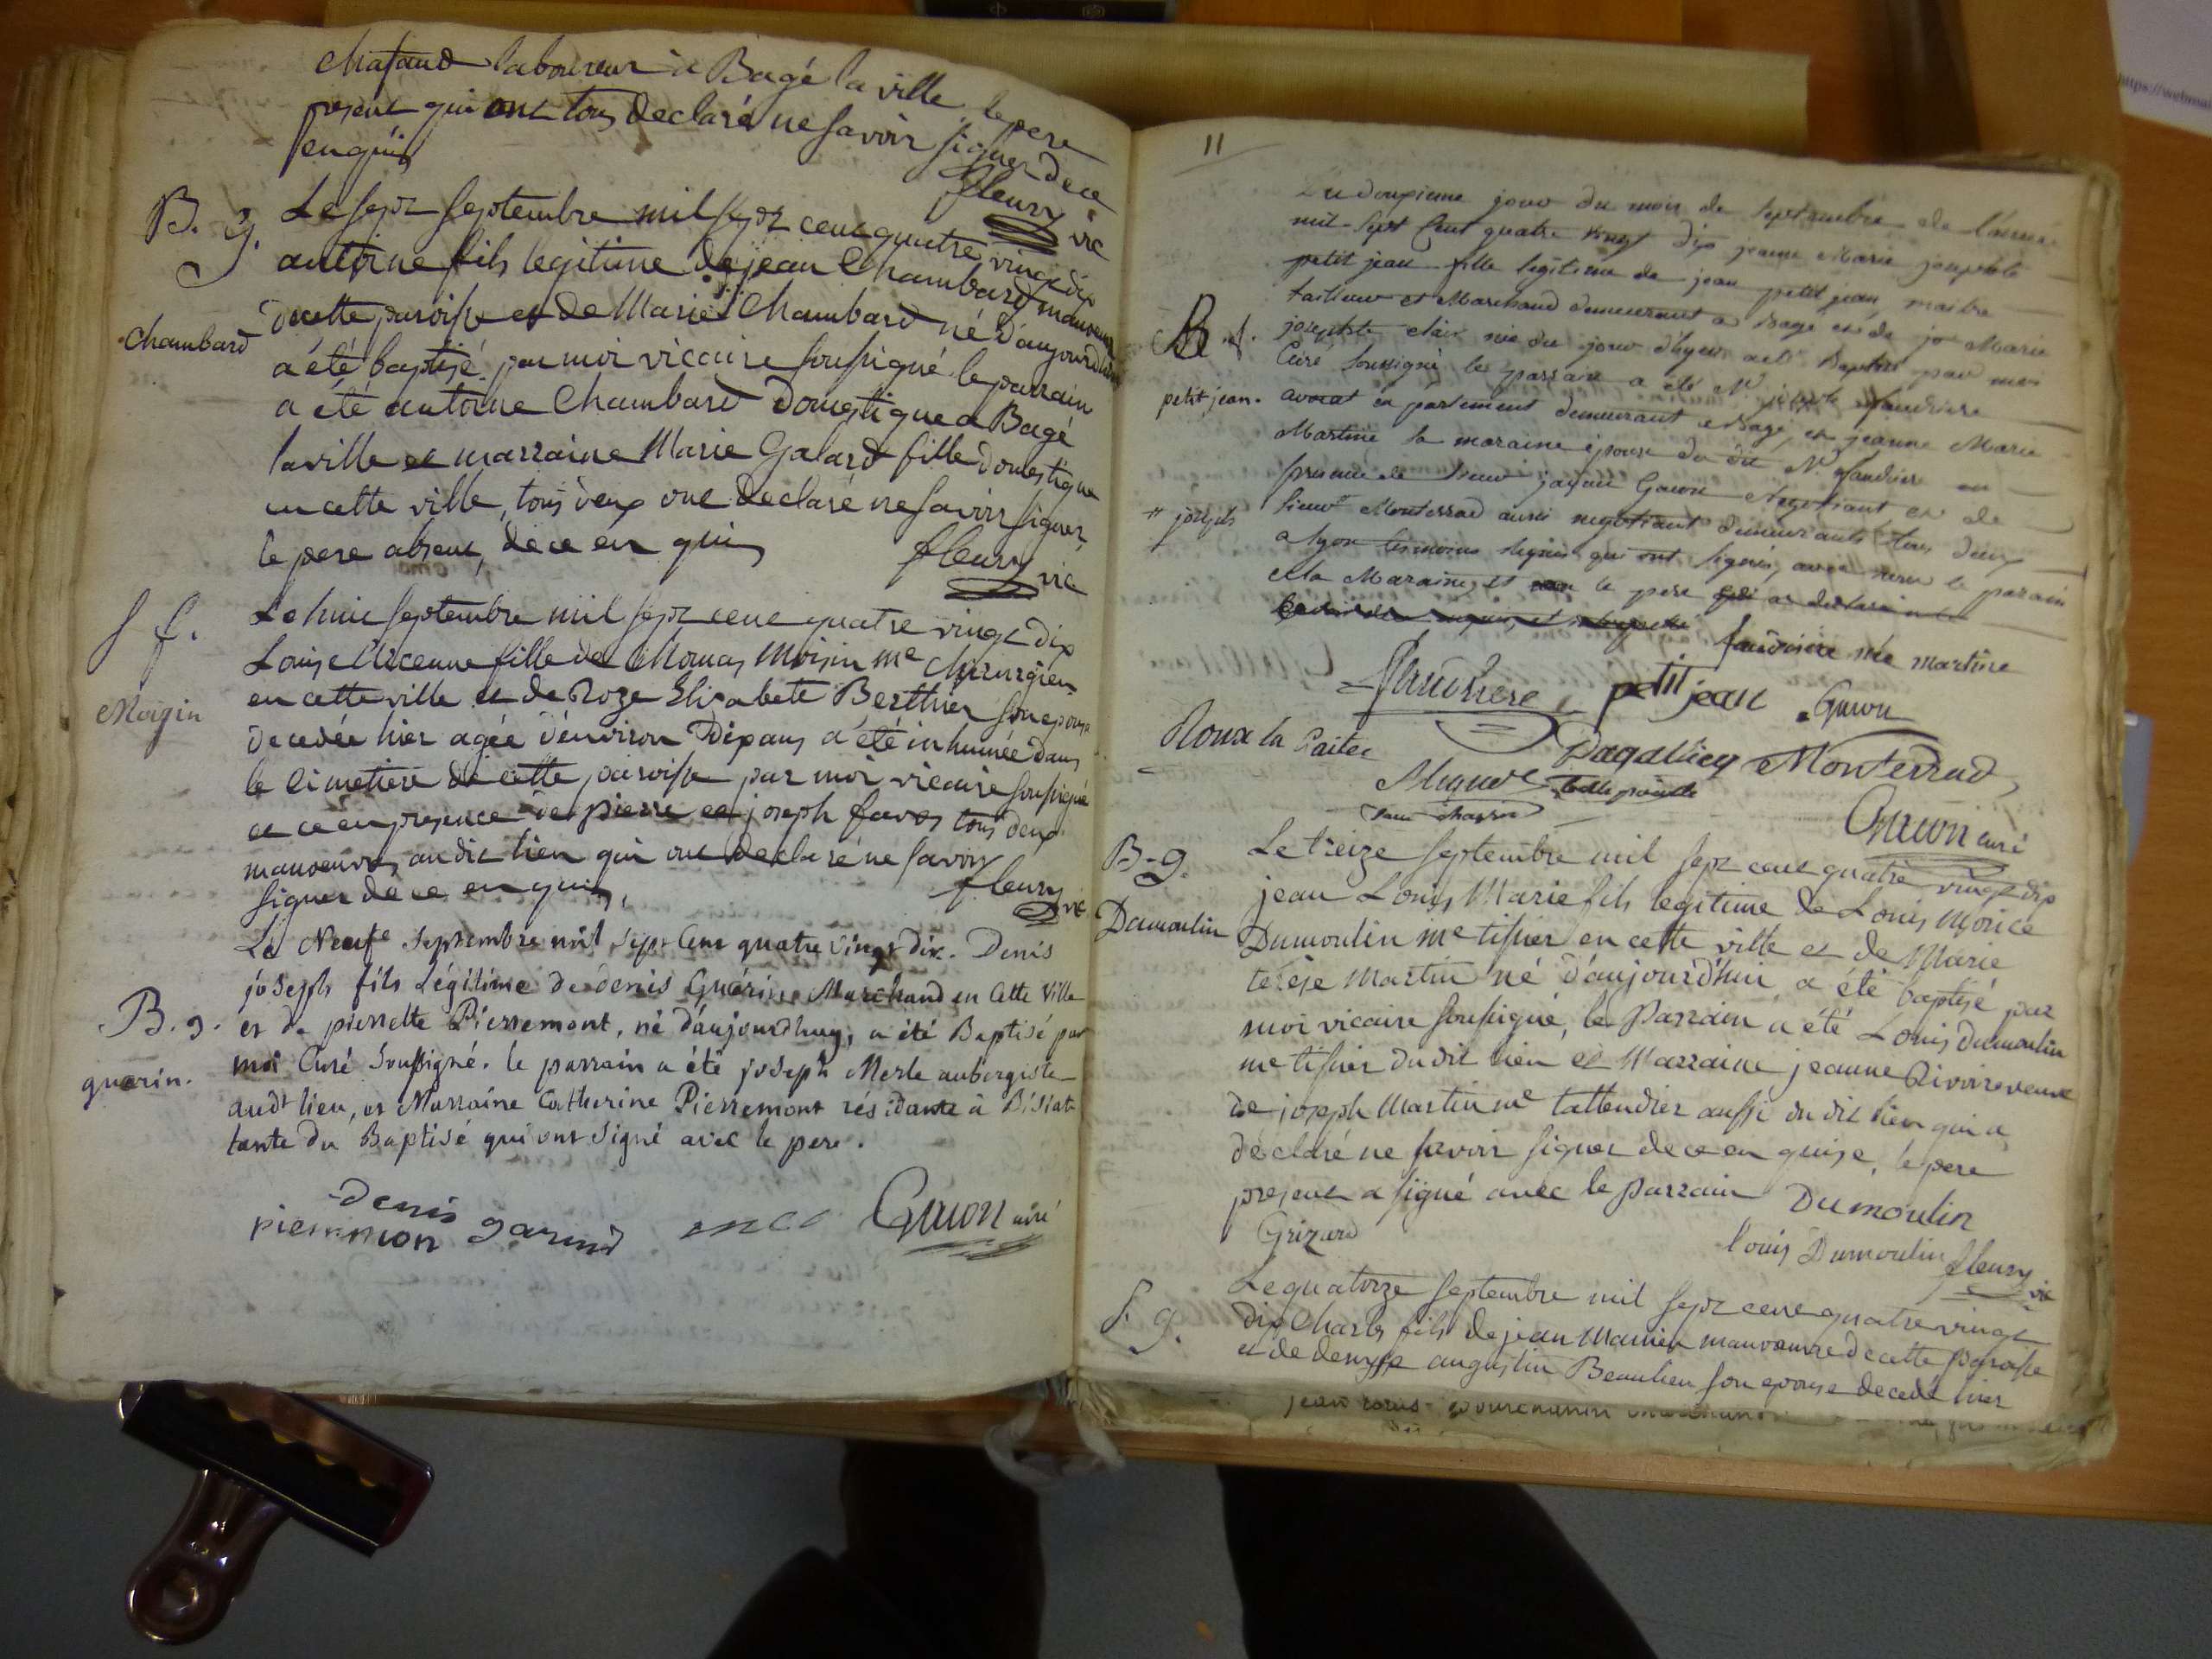 chafaud laboureur à Bagé la ville, le pere
present qui ont tous declaré ne savoir signer de ce
enquis
fleury vic
B. g.
Le sept septembre mil sept cent quatre vingt dix
antoine fils legitime de jean Chambard manoeuvre
Chambard
de cette paroisse et de Marie Chambard né d'aujourdhui
a été baptisé par moi vicaire soussigné le parrain
a été antoine Chambard domestique a Bagé
la ville et marraine Marie Galard fille domestique
en cette ville, tous deux ont declaré ne savoir signer
le pere absent, de ce en quis
fleury vic
S f.
Le huit septembre mil sept cent quatre vingt dix
Louise fille de thomas Moisin me chirurgien
Moisin
en cette ville et de Roze Elisabete Berthier son epouse
decedée hier agée d'environ dix ans a été inhumée dans
le cimetiere de cette paroisse par moi vicaire soussigné
et ce en presence de pierre et joseph favos tous deux
manoeuvres audit lieu qui ont declaré ne savoir
signer de ce en quis,
fleury vic
Le Neufe Septembre mil sept Cent quatre vingt dix. Denis
joseph fils Légitime de denis Guérin Marchand en Cette Ville
B. g.
et de pierrette Pierremont, né d'aujourdhuy, a été Baptisé par
moi Curé Soussigné. le parrain a été joseph Merle aubergiste
guerin.
audt lieu, et Marraine Catherine Pierremont résidante à
tante du Baptisé qui ont signé avec le pere.
denis
piermmon
Gacon curé
11
Du douzieme jour du mois de septembre de l'année
mil sept Cent quatre vingt dix jeanne Marie josephte
petit jean fille legitime de jean petit jean, maitre
tailleur et Marchand demeurant a Bagé et de je Marie
B. f.
josephte clair née du jour d'hyer a été Baptisée par moi
Curé soussigné le parrain a été Mr joseph
petit jean.
avocat en parlement demeurant a Bagé, et jeanne Marie
Martine la maraine épouse du dit Mr en
presence de sieur Gacon Negotiant et de
" joseph
sieur " Monterrad aussi negotiant demeurants tous deux
a lyon temoins requis qui ont signés, avec nous le parain
et la Maraine, et le pere
née martine
petit jean
Gacon
Roux la
Monterrad
Gacon curé
B-g.
Le treize septembre mil sept cent quatre vingt dix
jean Louis Marie fils legitime de Louis Morice
Dumoulin
Dumoulin me tissier en cette ville et de Marie
terese Martin né d'aujourd'hui a été baptisé par
moi vicaire soussigné, le Parrain a été Louis dumoulin
me tissier du dit lieu et Marraine jeanne Rivoire veuve
de joseph Martin me tattendier aussi du dit lieu qui a
déclaré ne savoir signer de ce en quise, le pere
present a signé avec le parrain
Dumoulin
Grizard
louis Dumoulin
fleury vic
S. g.
Le quatorze septembre mil sept cent quatre vingt
dix Charles fils de jean Manier manoeuvre de cette paroisse
et de denyse augustin Beaulieu son epouse decedé hier